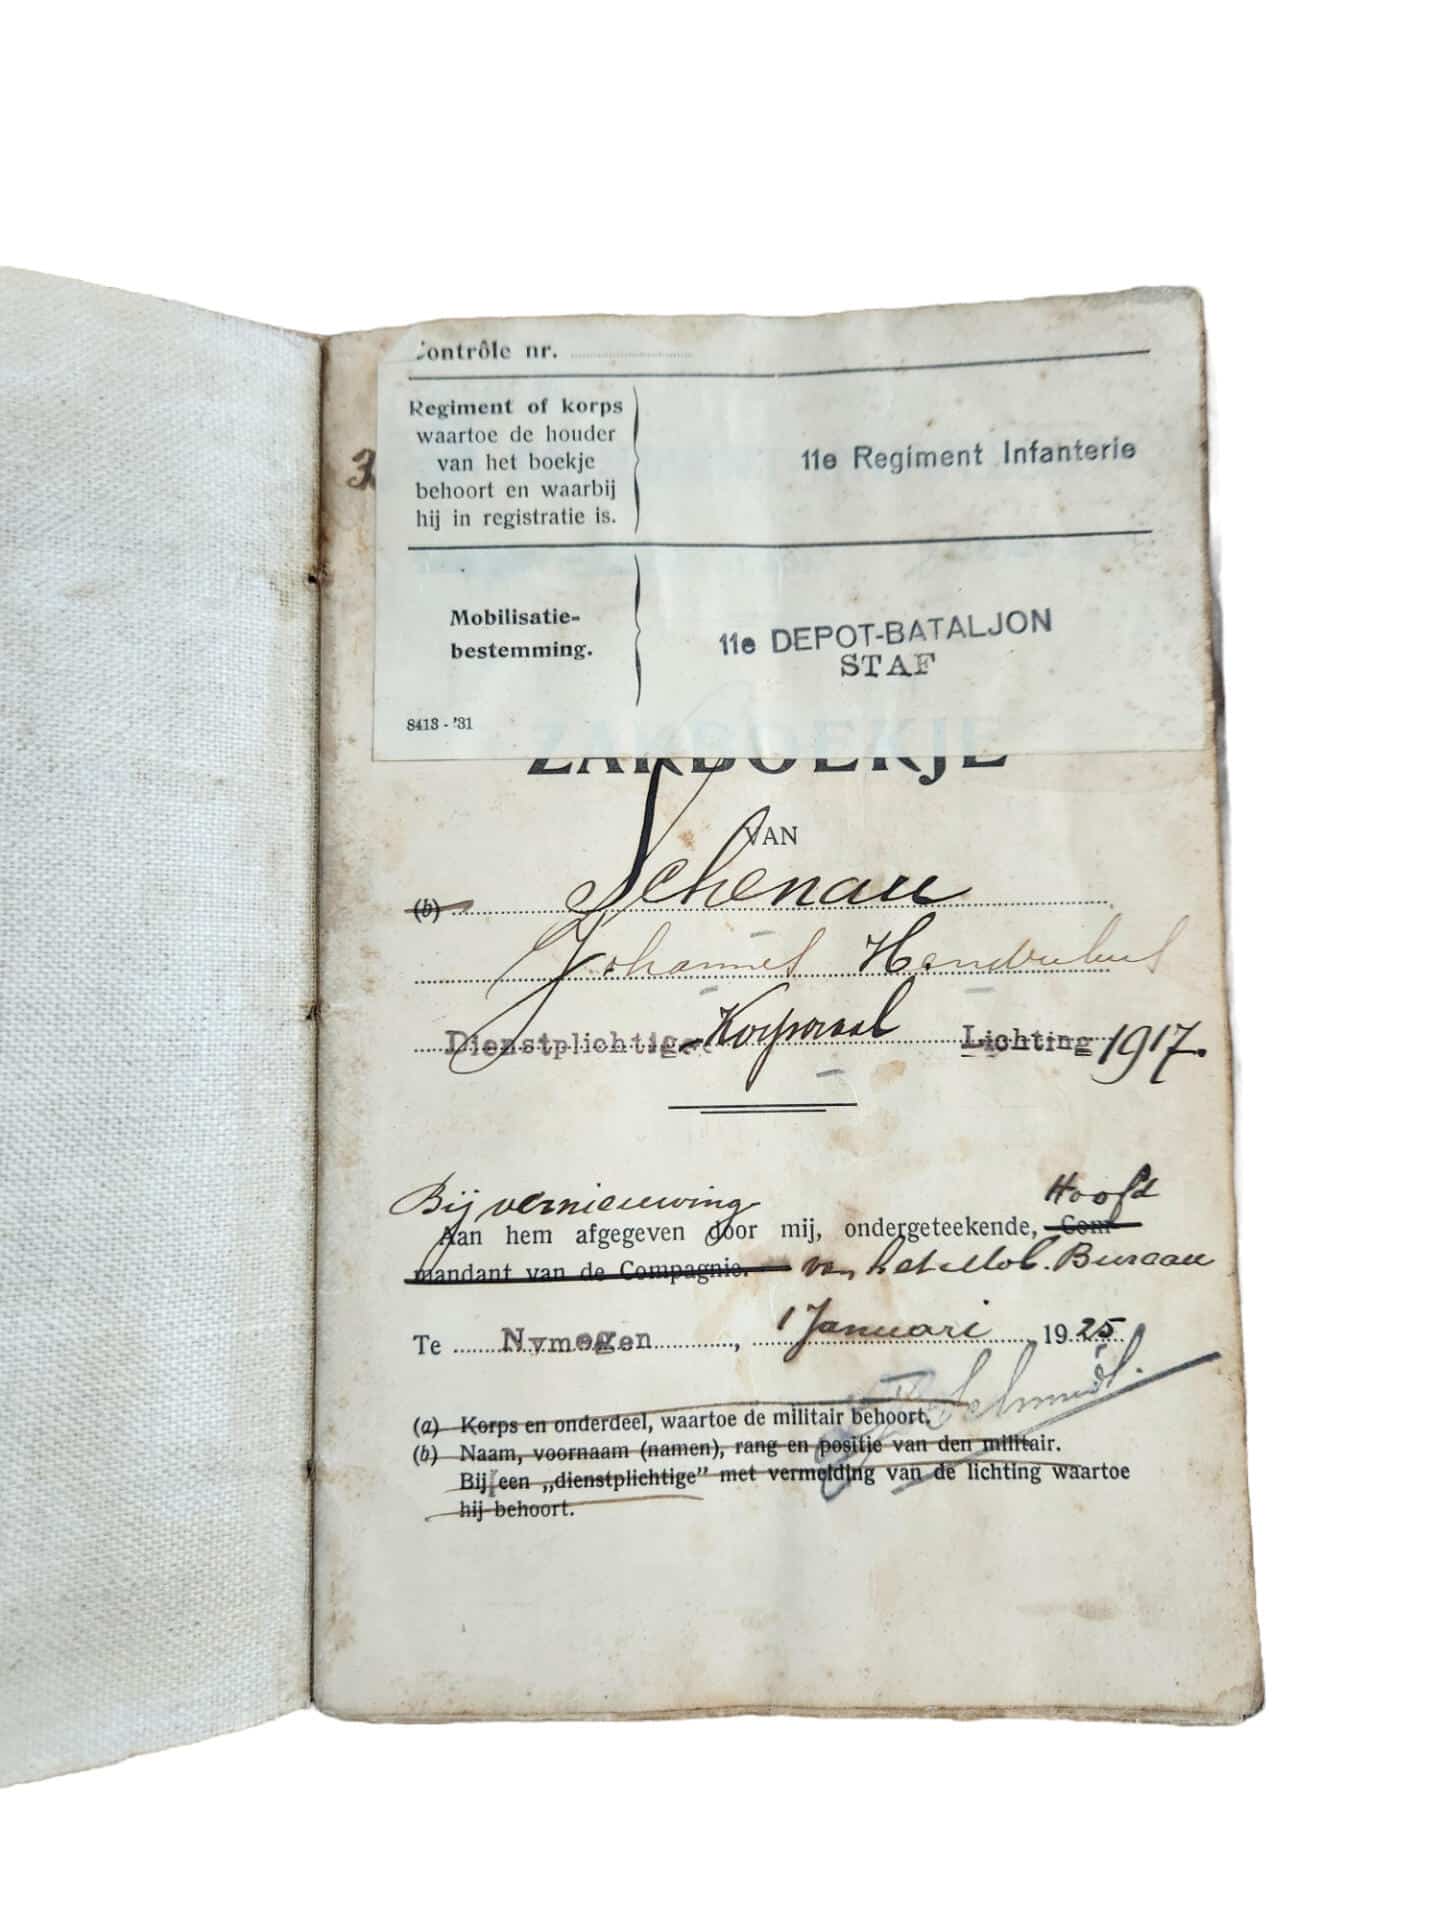 Contrôle nr.
Regiment of korps
waartoe de houder
van het boekje
behoort en waarbij
hij in registratie is.
11e Regiment Infanterie
3
Mobilisatie-
bestemming.
11e DEPOT-BATALJON
STAF
8413 - '31
ZAKBOEKJE
VAN
(b) Schenau
Johannes Hendrikus
Dienstplichtig Korporaal Lichting 1917.
Bij vernieuwing Hoofd
Aan hem afgegeven door mij, ondergeteekende, Com-
mandant van de Compagnie. van het Mob. Bureau
Te Nymegen, 1 Januari 1925
(a) Korps en onderdeel, waartoe de militair behoort.
(b) Naam, voornaam (namen), rang en positie van den militair.
Bij een „dienstplichtige” met vermelding van de lichting waartoe
hij behoort.